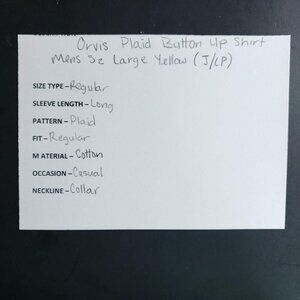 Orvis Plaid Button Up Shirt
Mens Sz Large Yellow (J/LP)
SIZE TYPE – Regular
SLEEVE LENGTH – Long
PATTERN – Plaid
FIT – Regular
MATERIAL – Cotton
OCCASION – Casual
NECKLINE – Collar